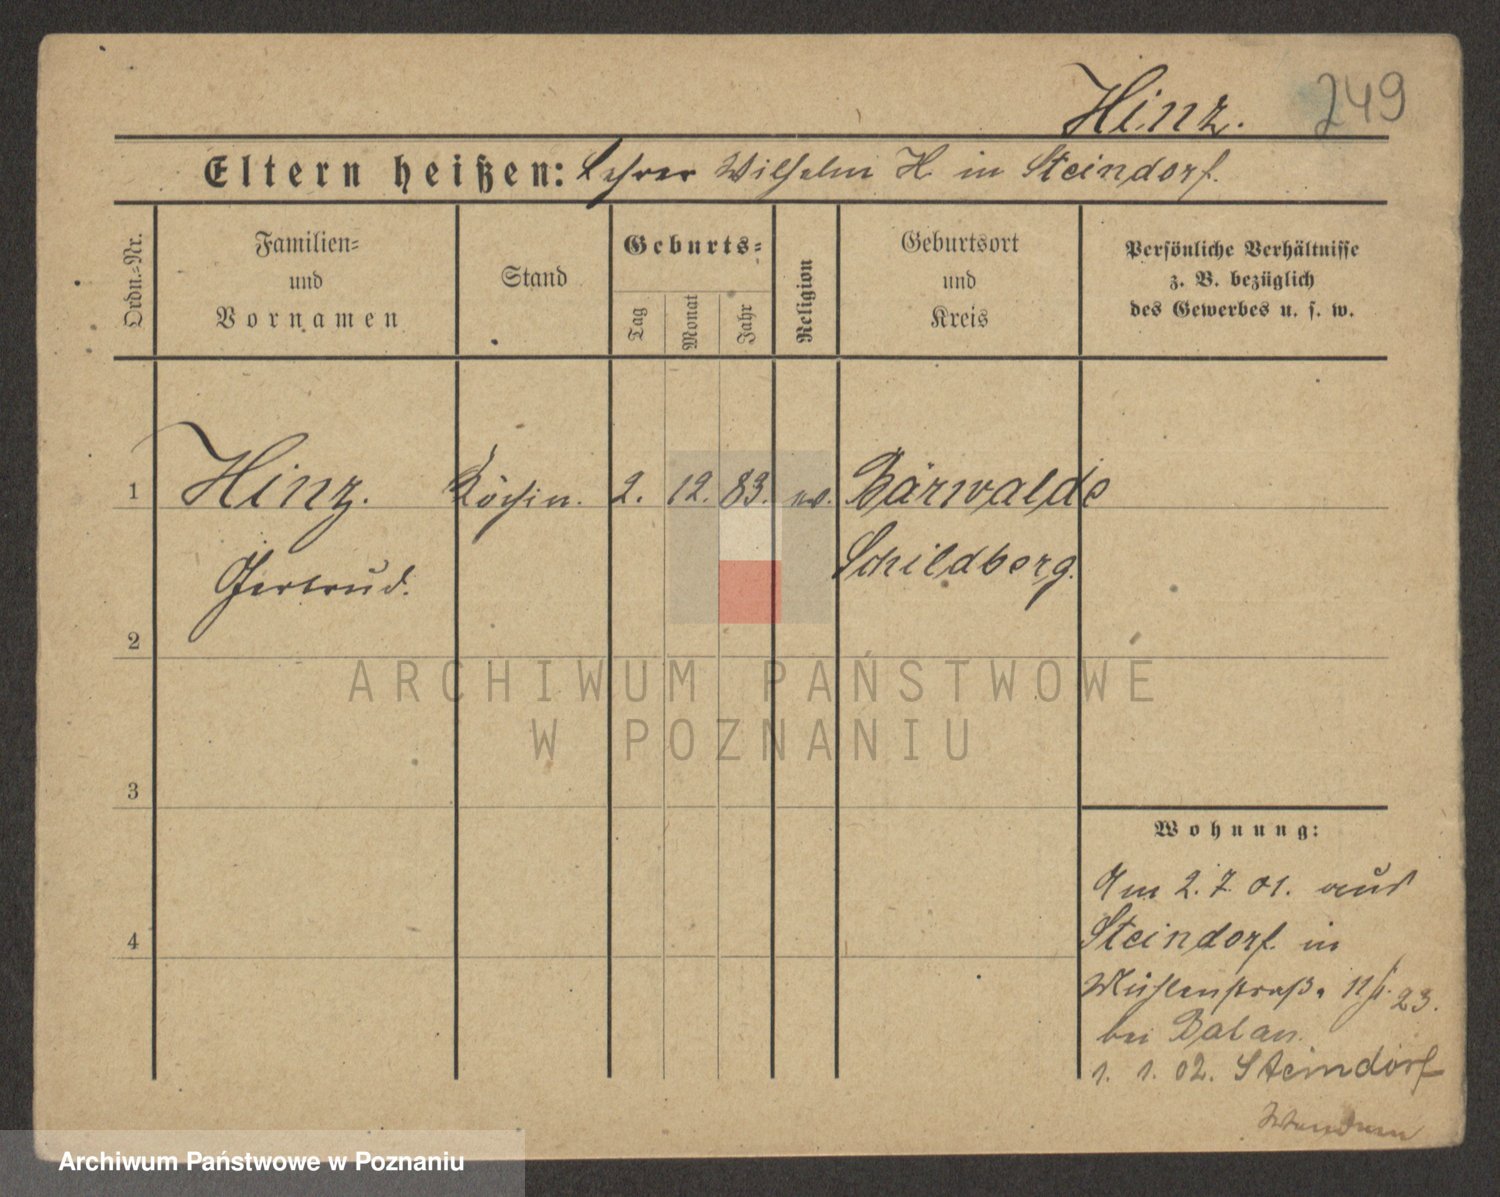 Hinz. 249
Eltern heißen: Lehrer Wilhelm H. in Steindorf.
Ordn.-Nr.
Familien-
und
Vornamen
Stand
Geburts-
Tag
Monat
Jahr
Religion
Geburtsort
und
Kreis
Persönliche Verhältnisse
z. B. bezüglich
des Gewerbes u. s. w.
1 Hinz. Köchin. 2. 12. 83. ev. Bärwalde
Gertrud. Schildberg.
2
ARCHIWUM PAŃSTWOWE
W POZNANIU
3
Wohnung:
Am 2. 7. 01. aus
4 Steindorf. in
Mühlenstraße 11/ 23.
bei
1. 1. 02. Steindorf
Archiwum Państwowe w Poznaniu